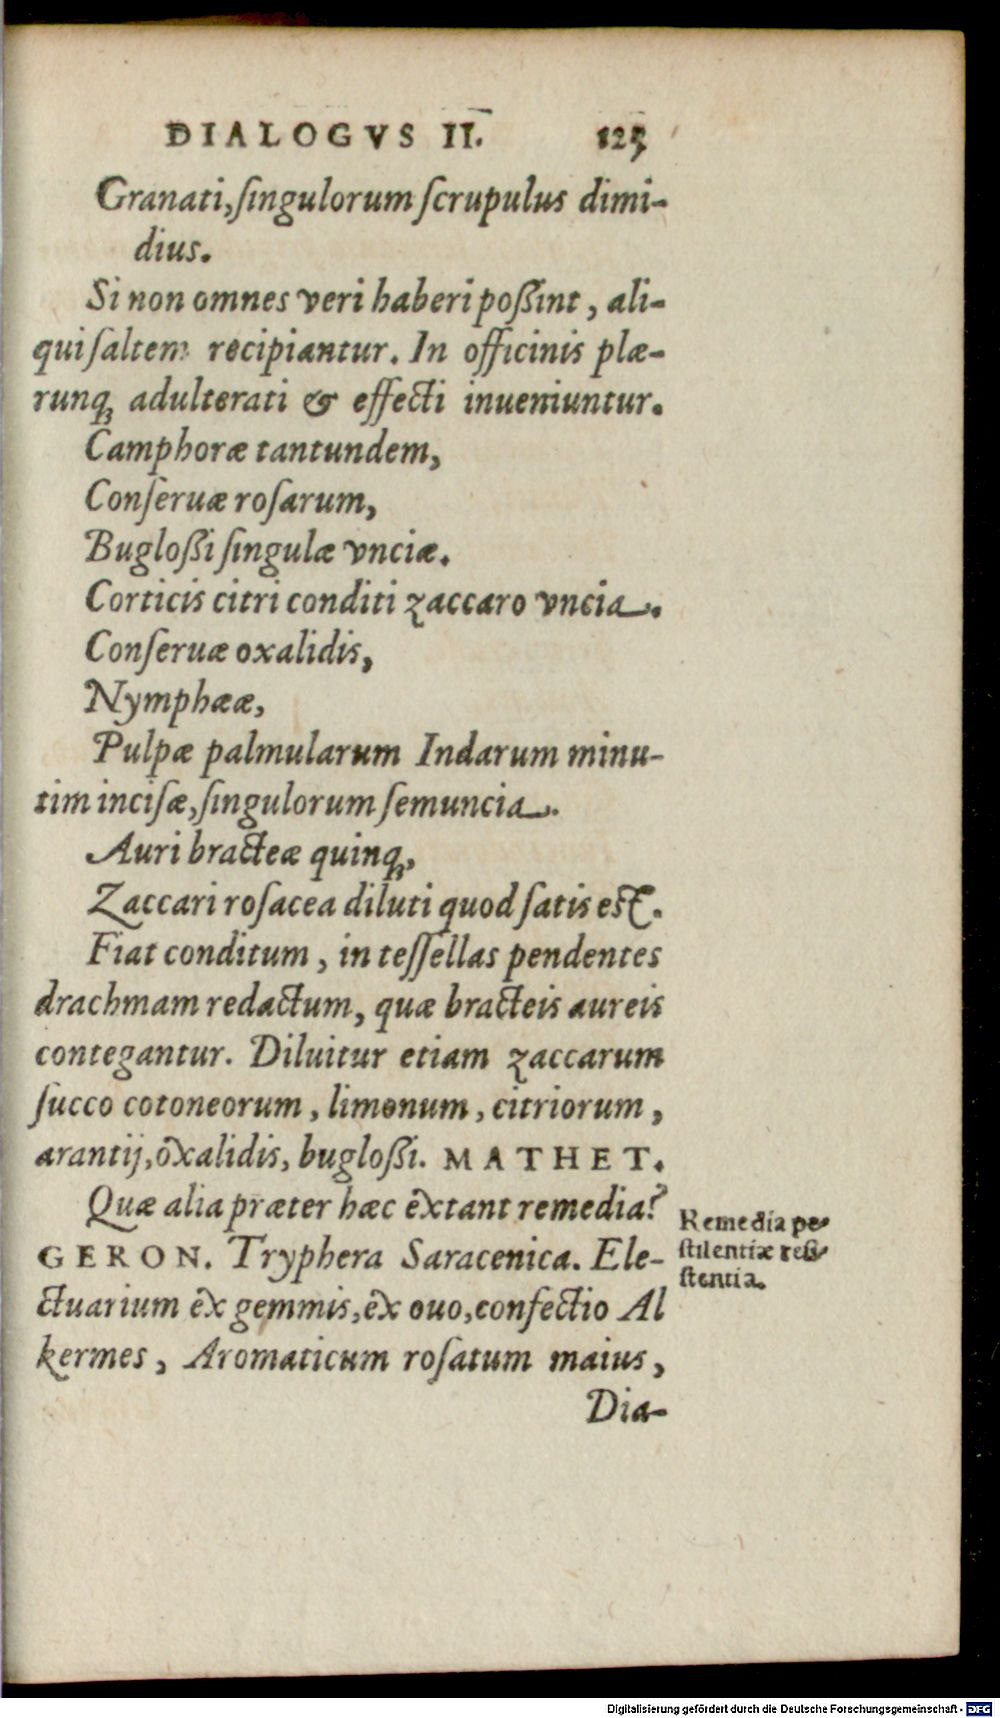 DIALOGVS II. 125
Granati, ſingulorum ſcrupulus dimi-
dius.
Si non omnes veri haberi poßint, ali-
qui ſaltem recipiantur. In officinis plæ-
runq; adulterati & effecti inueniuntur.
Camphoræ tantundem,
Conſeruæ roſarum,
Bugloßi ſingulæ vnciæ.
Corticis citri conditi zaccaro vncia.
Conſeruæ oxalidis,
Nymphææ,
Pulpæ palmularum Indarum minu-
tim inciſæ, ſingulorum ſemuncia.
Auri bracteæ quinq;,
Zaccari roſacea diluti quod ſatis eſt.
Fiat conditum, in teſſellas pendentes
drachmam redactum, quæ bracteis aureis
contegantur. Diluitur etiam zaccarum
ſucco cotoneorum, limonum, citriorum,
arantij, oxalidis, bugloßi. MATHET.
Quæ alia præter hæc extant remedia?
GERON. Tryphera Saracenica. Ele-
ctuarium ex gemmis, ex ouo, confectio Al
kermes, Aromaticum roſatum maius,
Dia-
Remedia pe-
ſtilentiæ reſi-
ſtentia.
Digitalisierung gefördert durch die Deutsche Forschungsgemeinschaft - DFG